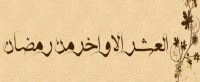 العشر الاواخر من رمضان